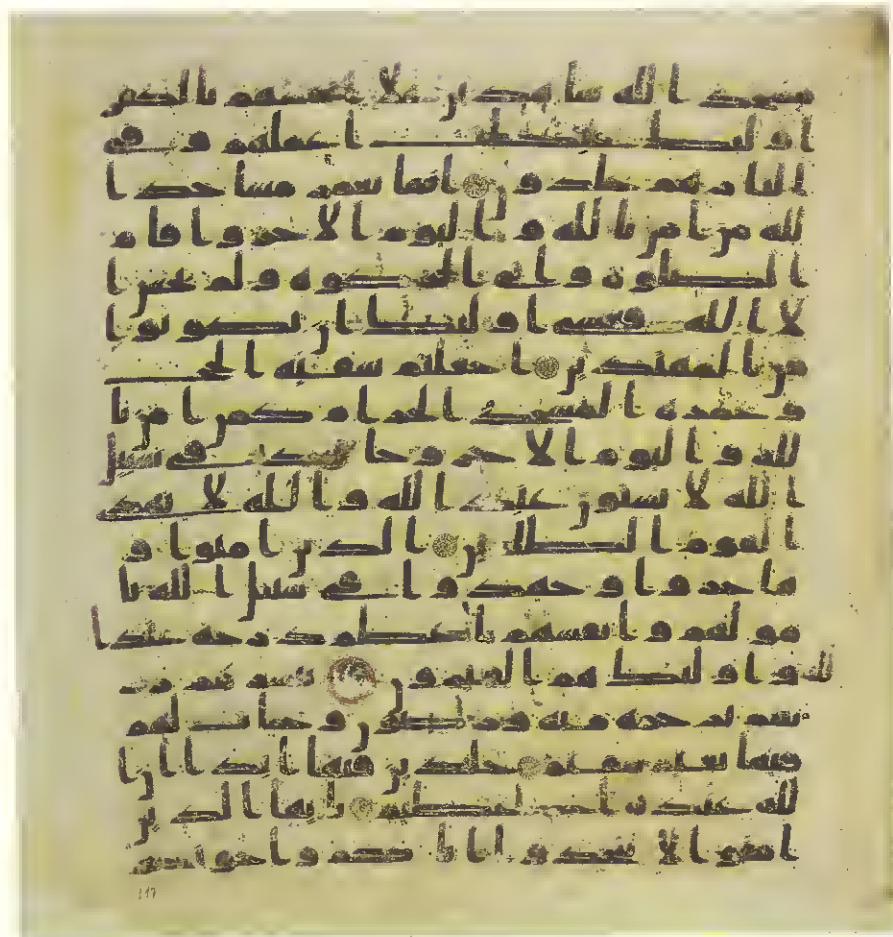 مسجد الله شاهدين علا انفسهم بالكفر
اولئك حبطت اعملهم وفي
النار هم خلدون انما يعمر مساجد ا
لله من امن بالله واليوم الاخر واقام
الصلوة واتى الزكوة ولم يخش ا
لا الله فعسى اولئك ان يكونوا
من المهتدين اجعلتم سقية الحج
وعمرة المسجد الحرام كمن امن با
لله واليوم الاخر وجهد في سبيل
الله لا يستون عند الله والله لا يهدي
القوم الظلمين الذين امنوا و
هاجروا وجهدوا في سبيل الله با
مولهم وانفسهم اعظم درجة عند ا
لله واولئك هم الفئزون يبشرهم ر
بهم برحمة منه ورضون وجنات لهم
فيها نعيم مقيم خلدين فيها ابدا ان ا
لله عنده اجر عظيم يايها الذين
امنوا لا تتخذوا اباكم واخونكم